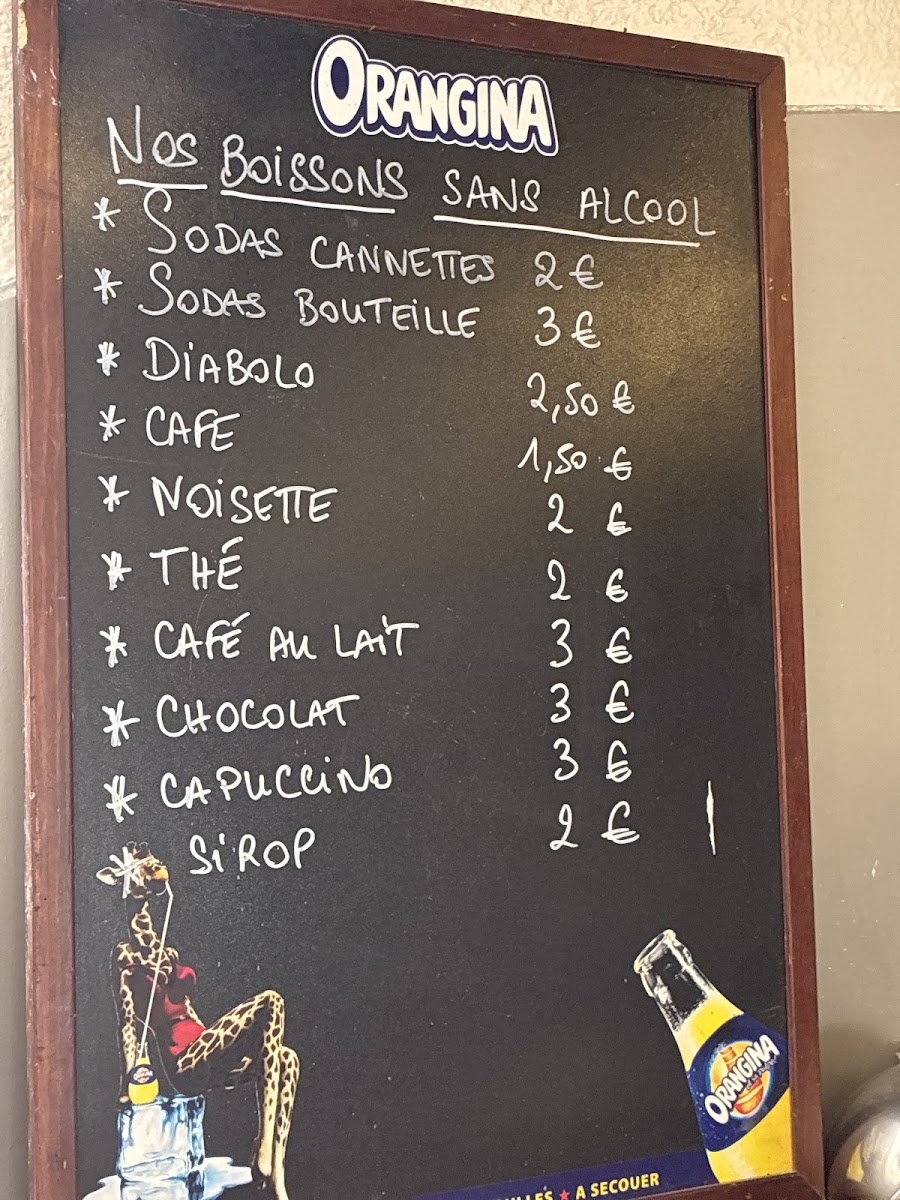 ORANGINA
NOS BOISSONS SANS ALCOOL
* SODAS CANNETTES 2 €
* SODAS BOUTEILLE 3 €
* DIABOLO 2,50 €
* CAFE 1,50 €
* NOISETTE 2 €
* THÉ 2 €
* CAFÉ AU LAIT 3 €
* CHOCOLAT 3 €
* CAPUCCINO 3 €
* SIROP 2 €
ORANGINA
★ A SECOUER